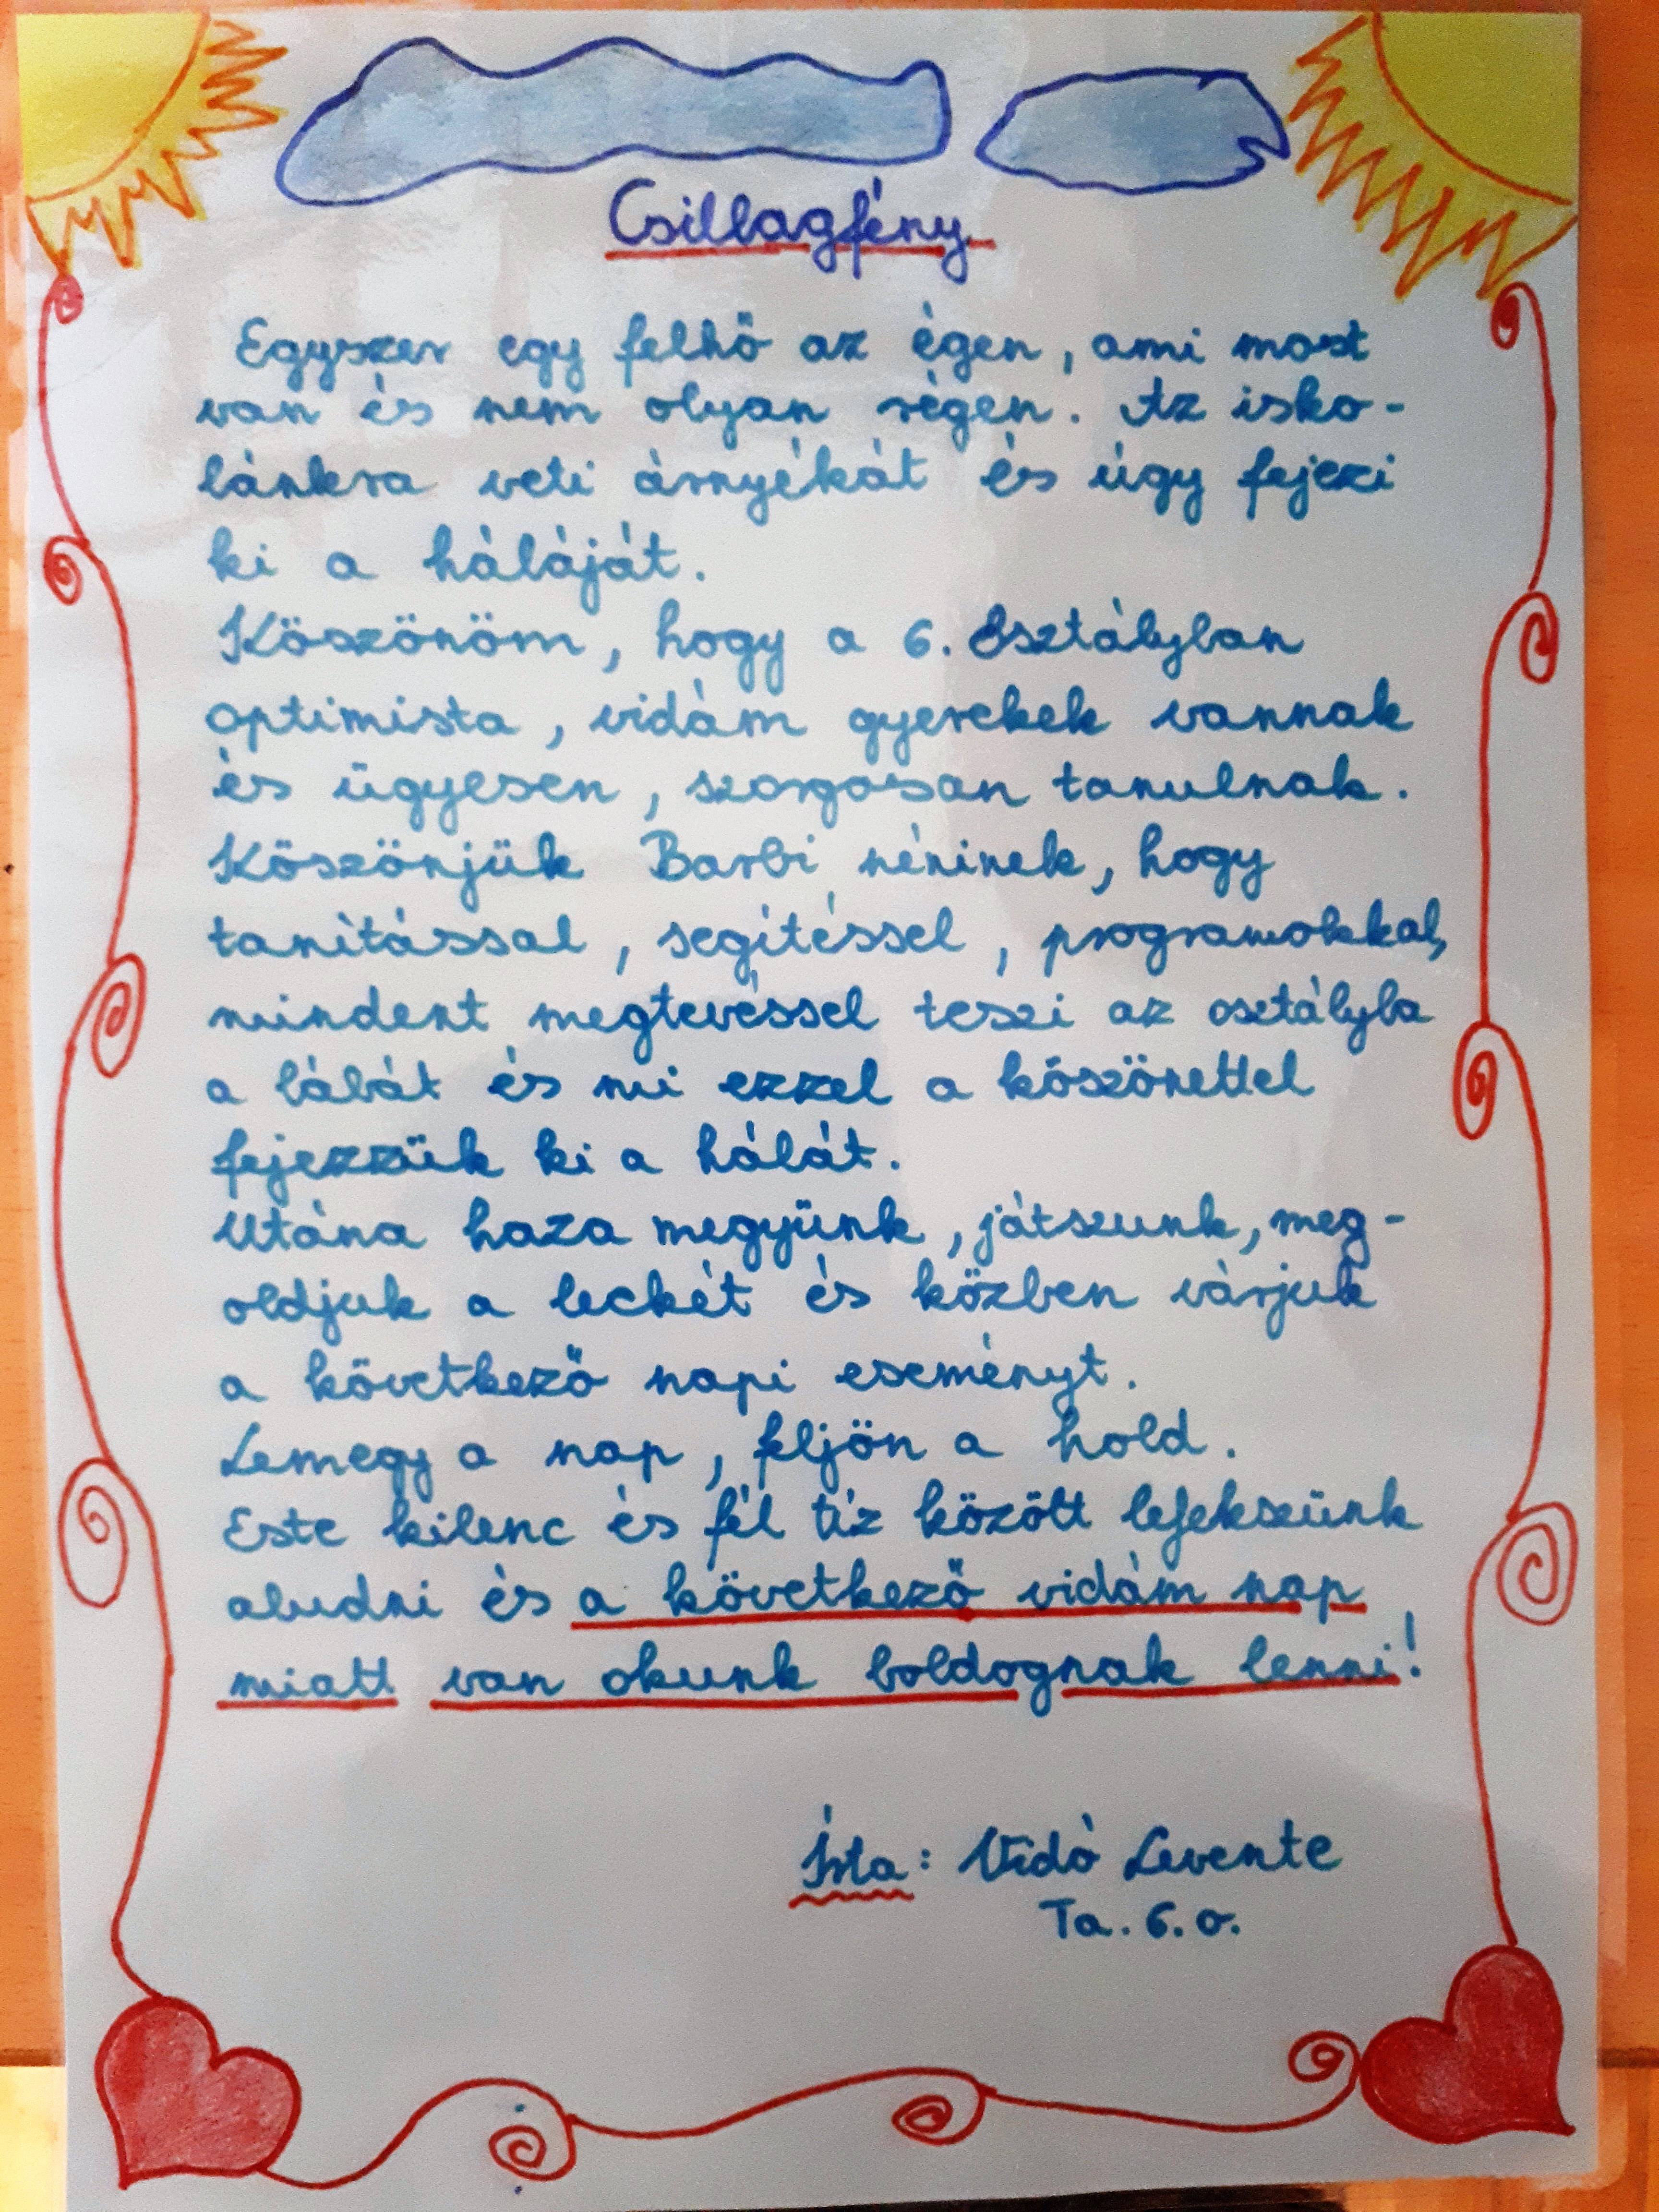 Csillagfény
Egyszer egy felhő az égen, ami most
van és nem olyan régen. Az isko-
lánkra veti árnyékát és úgy fejezi
ki a háláját.
Köszönöm, hogy a 6. Osztályban
optimista, vidám gyerekek vannak
és ügyesen, szorgosan tanulnak.
Köszönjük Barbi néninek, hogy
tanítással, segítéssel, programokkal,
mindent megtevéssel teszi az osztályba
a lábát és mi ezzel a köszönettel
fejezzük ki a hálát.
Utána haza megyünk, játszunk, meg-
oldjuk a leckét és közben várjuk
a következő napi eseményt.
Lemegy a nap, feljön a hold.
Este kilenc és fél tíz között lefekszünk
aludni és a következő vidám nap
miatt van okunk boldognak lenni!
Írta: Vidó Levente
Ta. 6. o.